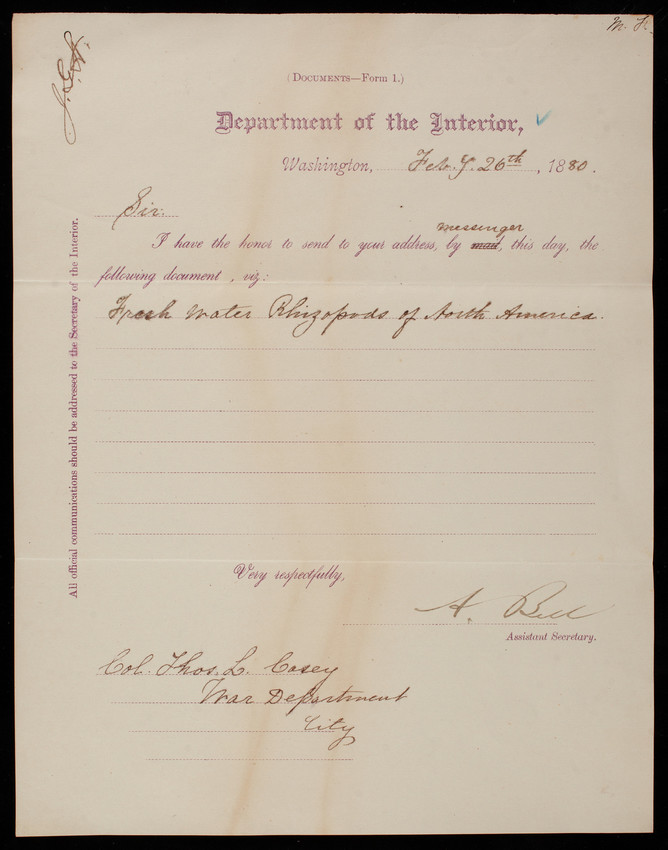 M. F.
J.G.A.
(DOCUMENTS—Form 1.)
Department of the Interior,
Washington, Feb.y. 26th, 1880.
Sir:
messenger
I have the honor to send to your address, by mail, this day, the
following document , viz:
Fresh Water Rhizopods of North America.
Very respectfully,
A. Bell
Assistant Secretary.
Col. Thos. L. Casey
War Department
City
All official communications should be addressed to the Secretary of the Interior.